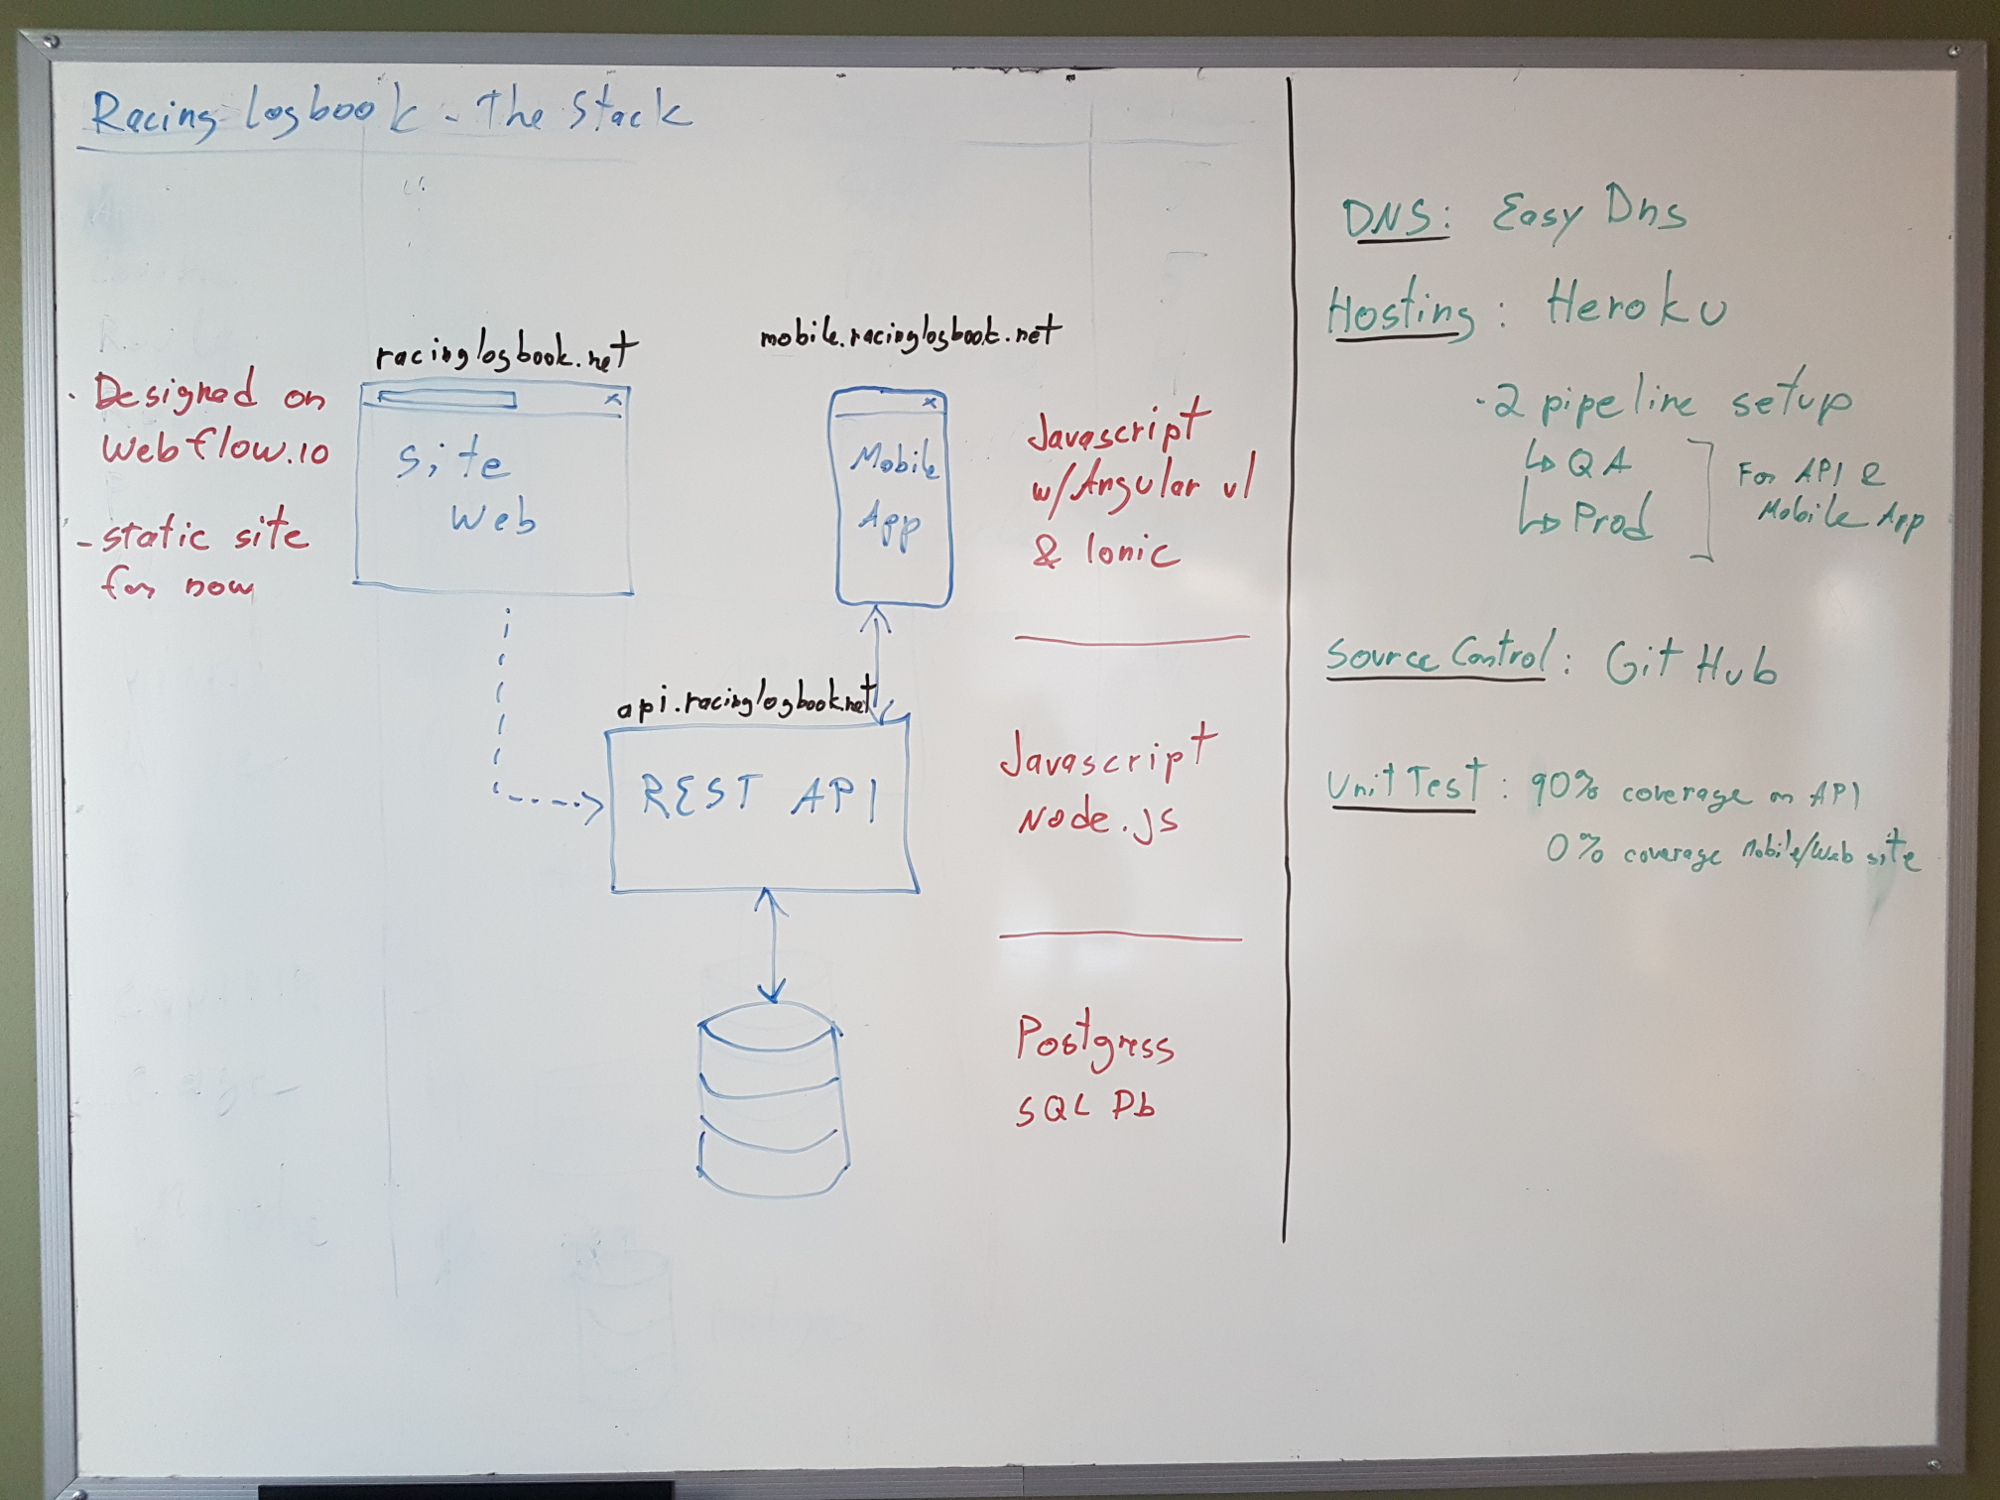 Racing logbook - The Stack
racinglogbook.net
mobile.racinglogbook.net
· Designed on
Webflow.io
- static site
for now
x
site
web
x
Mobile
App
Javascript
w/Angular v1
& Ionic
api.racinglogbook.net
REST API
Javascript
Node.js
Postgress
SQL Db
DNS: Easy Dns
Hosting: Heroku
- 2 pipeline setup
QA
Prod
For API &
Mobile App
Source Control: GitHub
Unit Test: 90% coverage on API
0% coverage Mobile/Web site